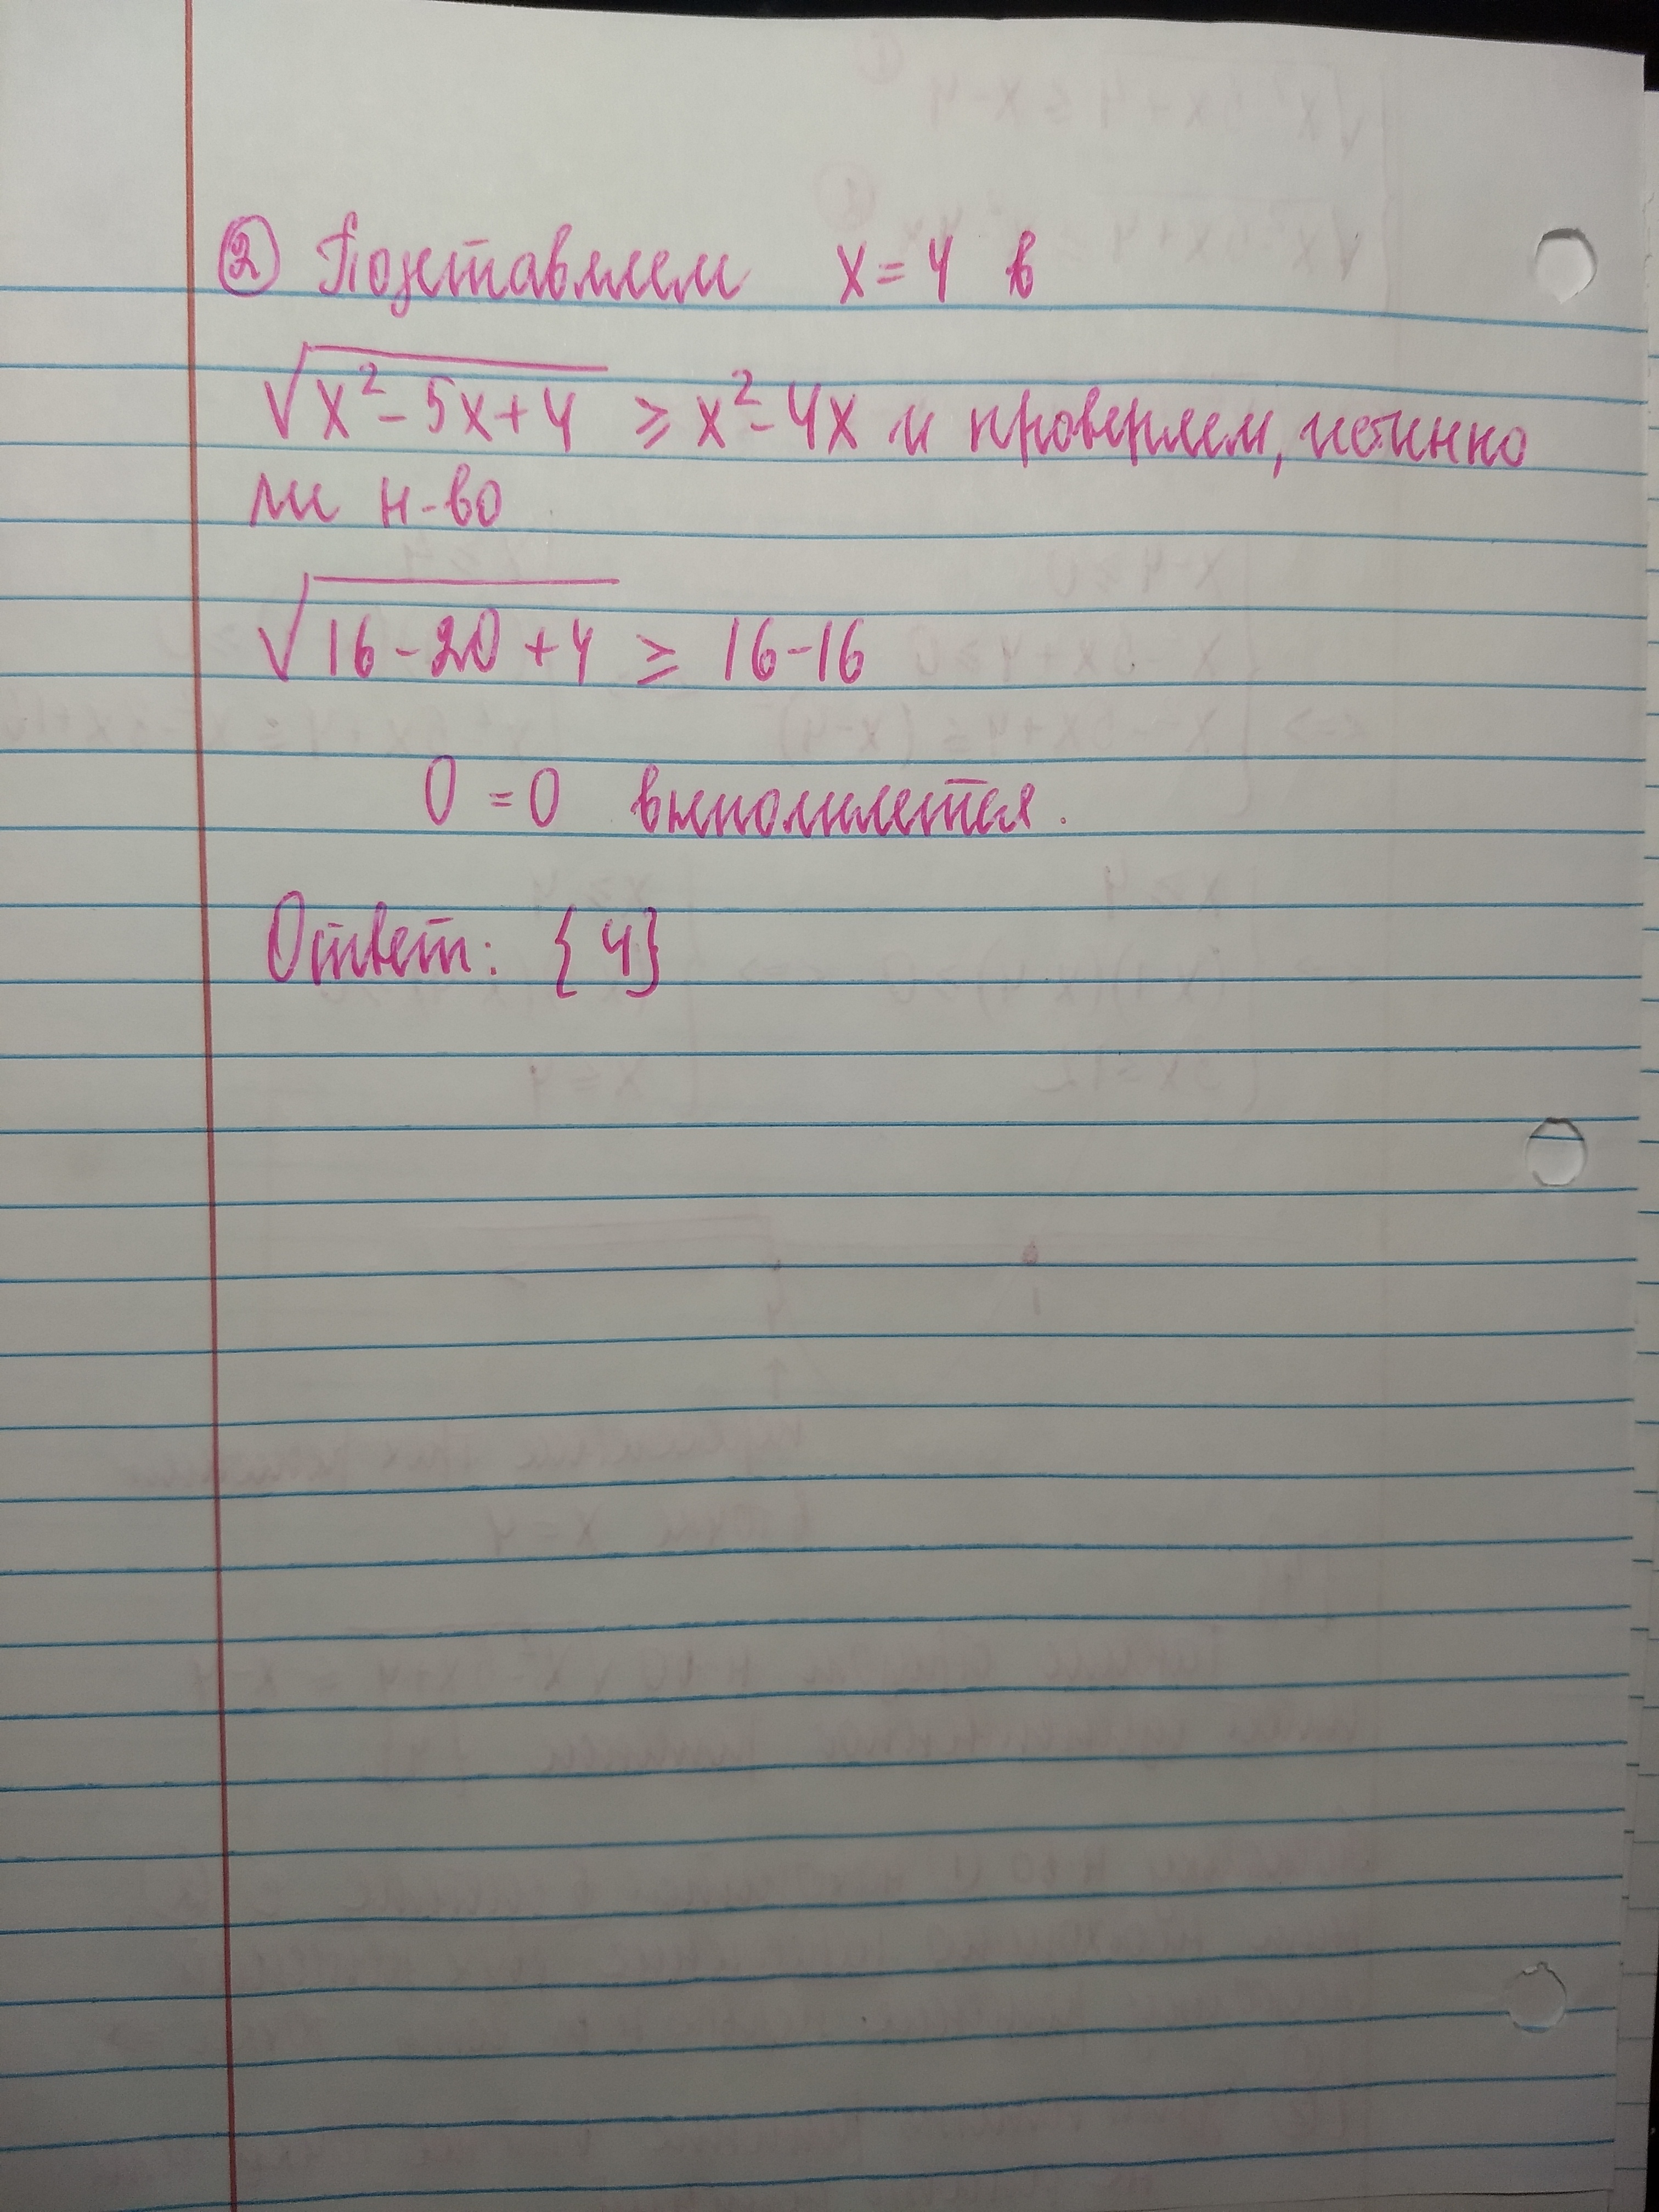 ② Подставляем x = 4 в
√(x² - 5x + 4) ≥ x² - 4x и проверяем, истинно
ли н-во
√(16 - 20 + 4) ≥ 16 - 16
0 = 0 выполняется.
Ответ: {4}